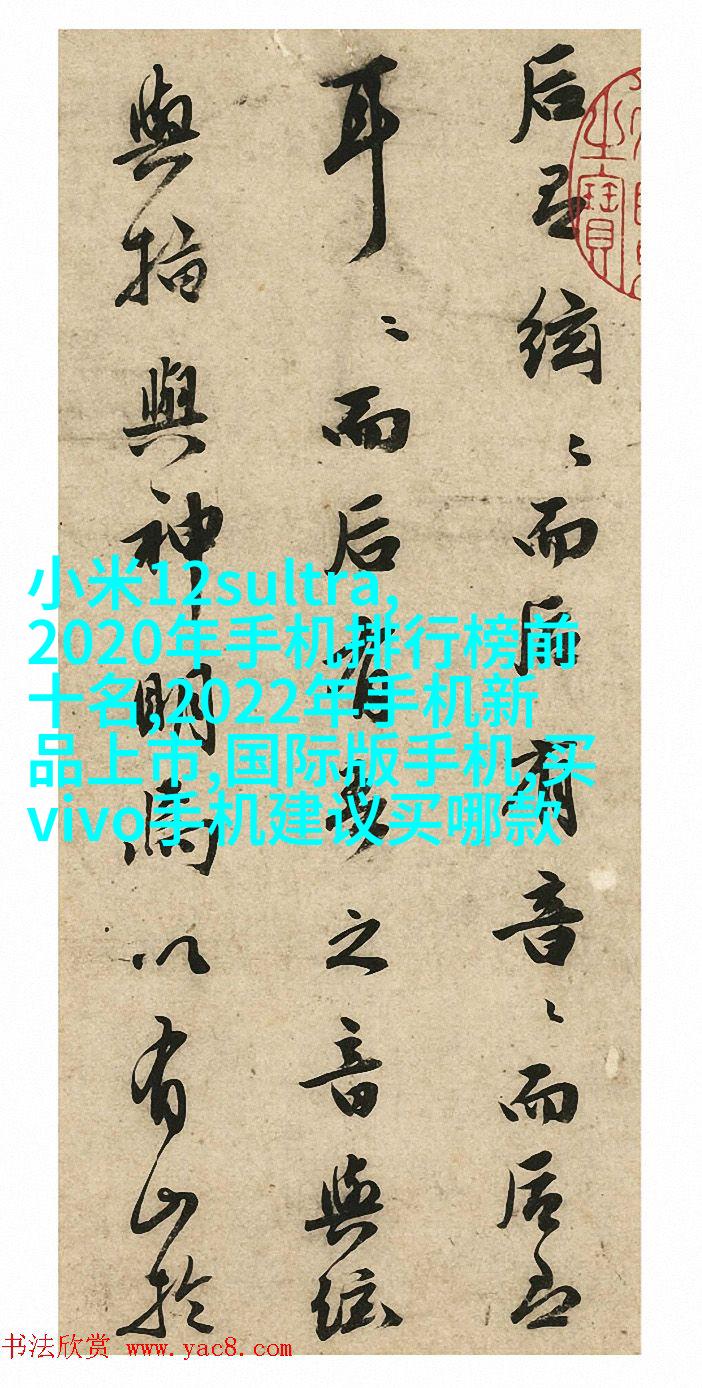 后絃〻而后有音〻而后
耳〻而后有之音與絃
與指與神明以有山於
之寶
小米12sultra,
2020年手机排行榜前
十名,2022年手机新
品上市,国际版手机,买
vivo手机建议买哪款
书法欣赏 www.yac8.com